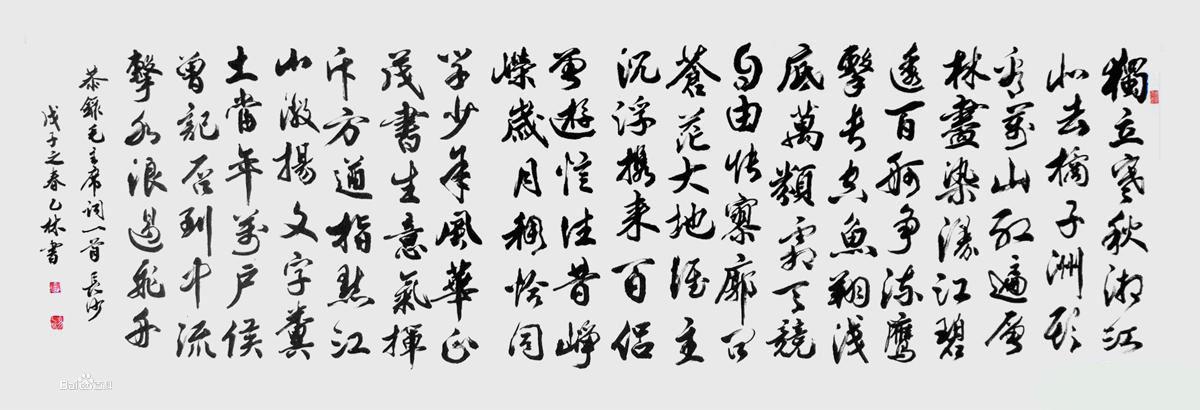 獨立寒秋湘江
北去橘子洲頭
看萬山紅遍層
林盡染漫江碧
透百舸爭流鷹
擊長空魚翔淺
底萬類霜天競
自由悵寥廓問
蒼茫大地誰主
沉浮攜來百侶
曾遊憶往昔崢
嶸歲月稠恰同
學少年風華正
茂書生意氣揮
斥方遒指點江
山激揚文字糞
土當年萬戶侯
曾記否到中流
擊水浪遏飛舟
恭錄毛主席詞一首 長沙
戊子之春乙林書
Baidu百科